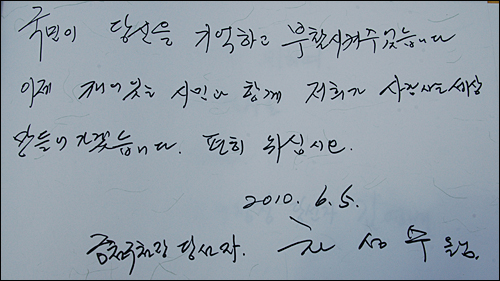 국민이 당신을 기억하고 부활시켜주었습니다
이제 깨어있는 시민과 함께 저희가 사람사는세상
만들어가겠습니다. 편히 쉬십시오.
2010. 6. 5.
금천구청장 당선자. 차 성 수 올림.